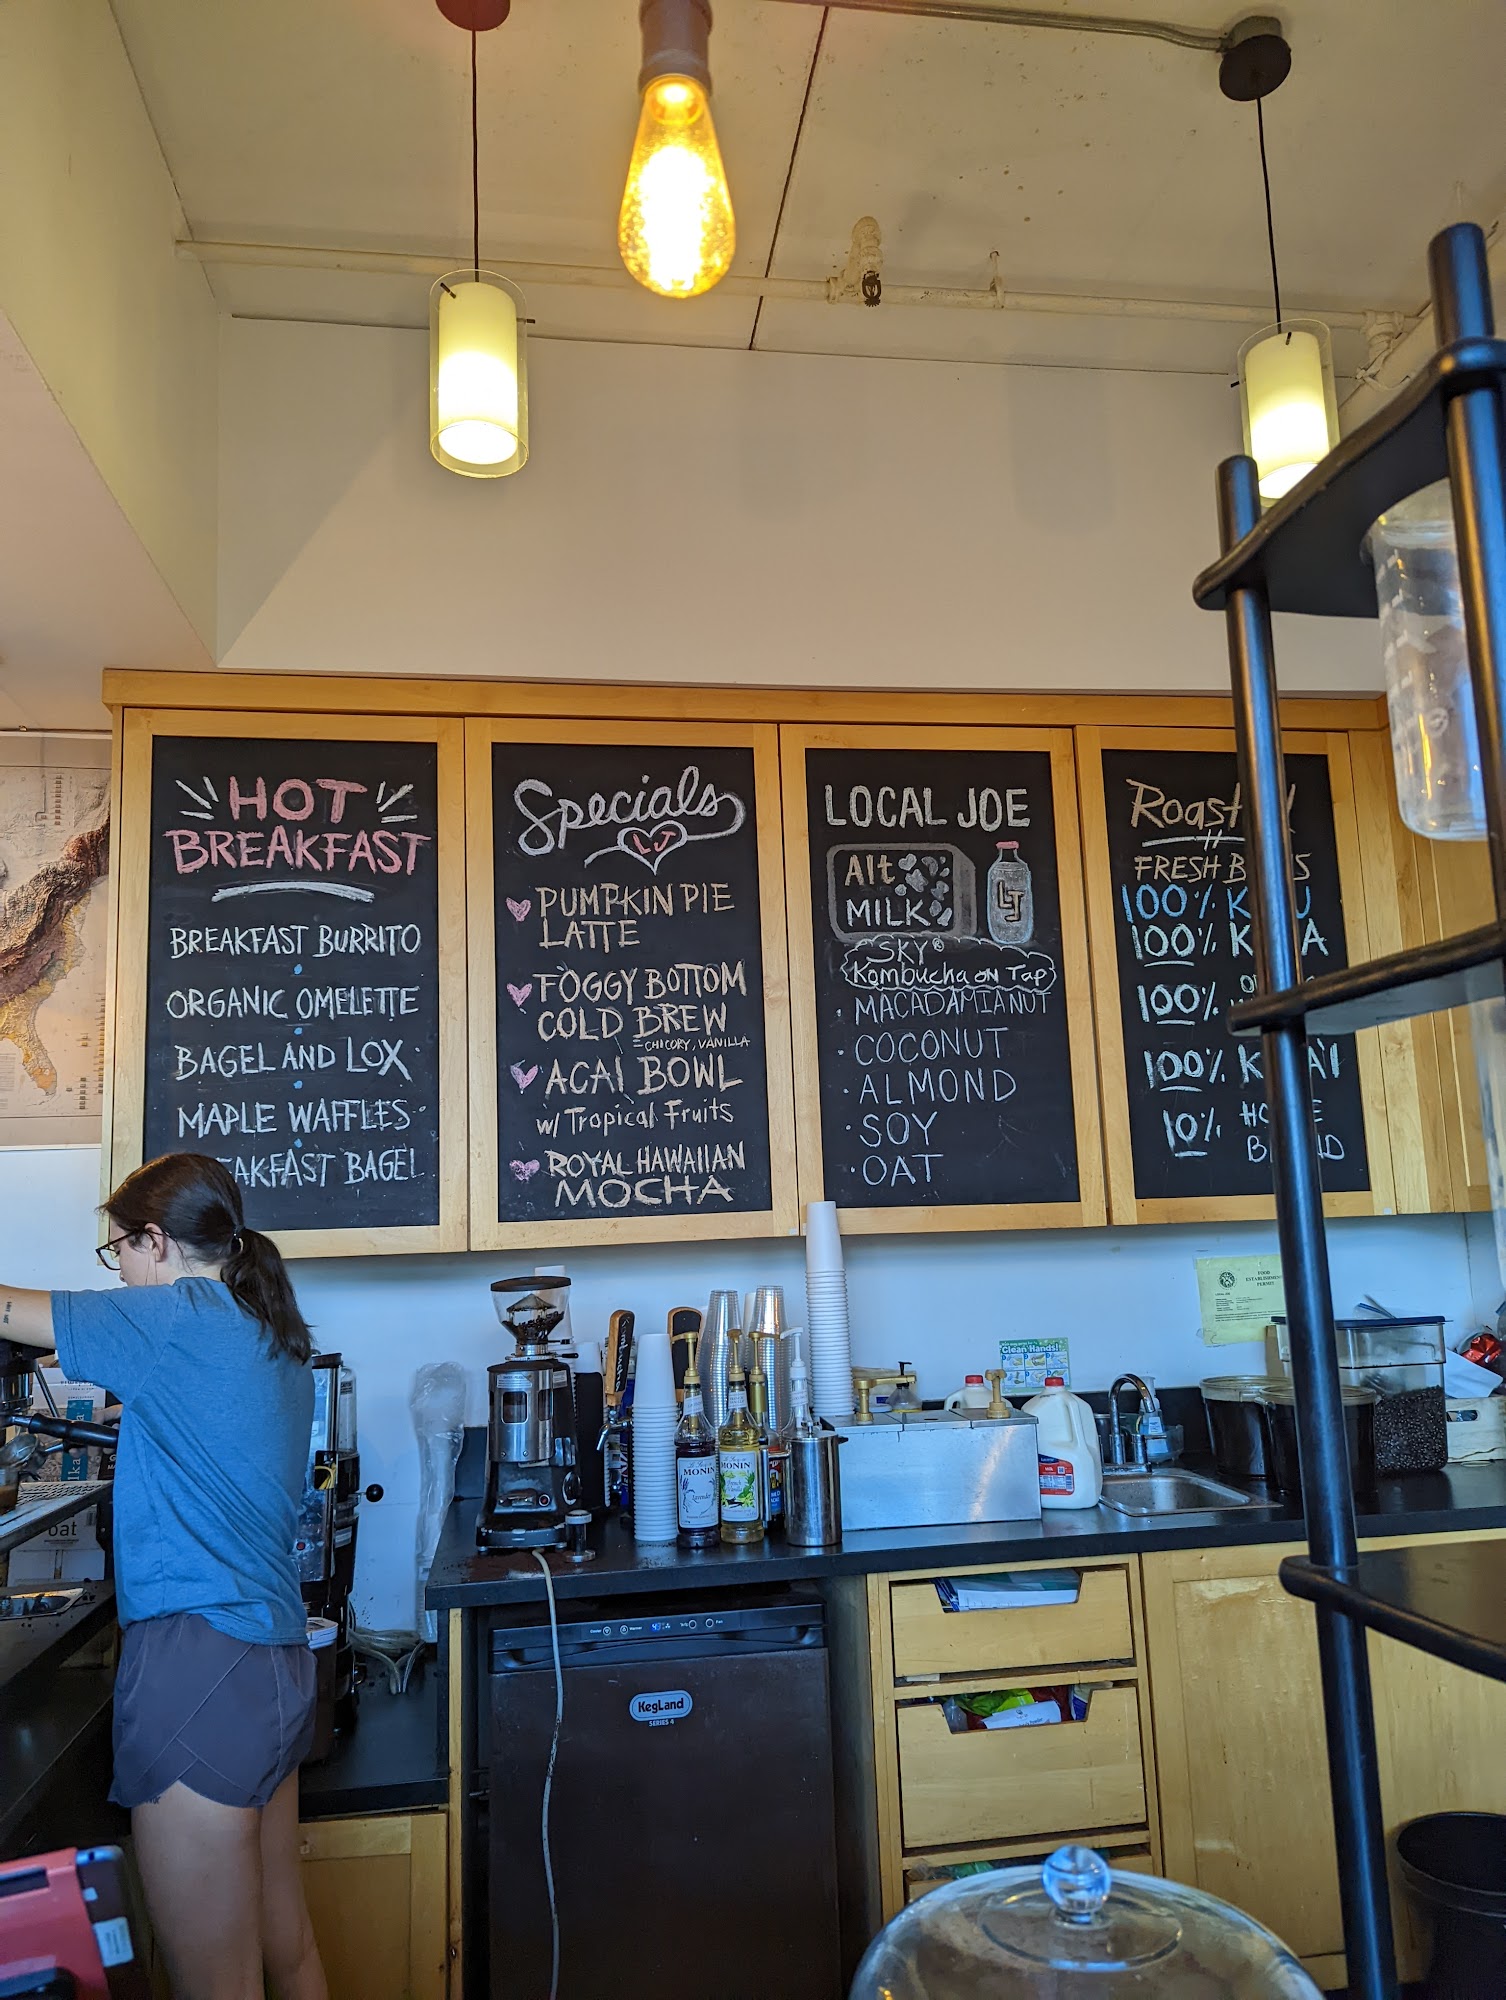 HOT
BREAKFAST
BREAKFAST BURRITO
ORGANIC OMELETTE
BAGEL AND LOX
MAPLE WAFFLES
BAGEL
Specials
LJ
PUMPKIN PIE
LATTE
FOGGY BOTTOM
COLD BREW
CHICORY, VANILLA
ACAI BOWL
w/ Tropical Fruits
ROYAL HAWAIIAN
MOCHA
LOCAL JOE
Alt
MILK
LJ
SKY®
Kombucha on Tap
· MACADAMIA NUT
· COCONUT
· ALMOND
· SOY
· OAT
FRESH
100%
100%
100%
100%
10%
FOOD
ESTABLISHMENT
PERMIT
Clean Hands!
MONIN
Lavender
MONIN
oat
KegLand
SERIES 4